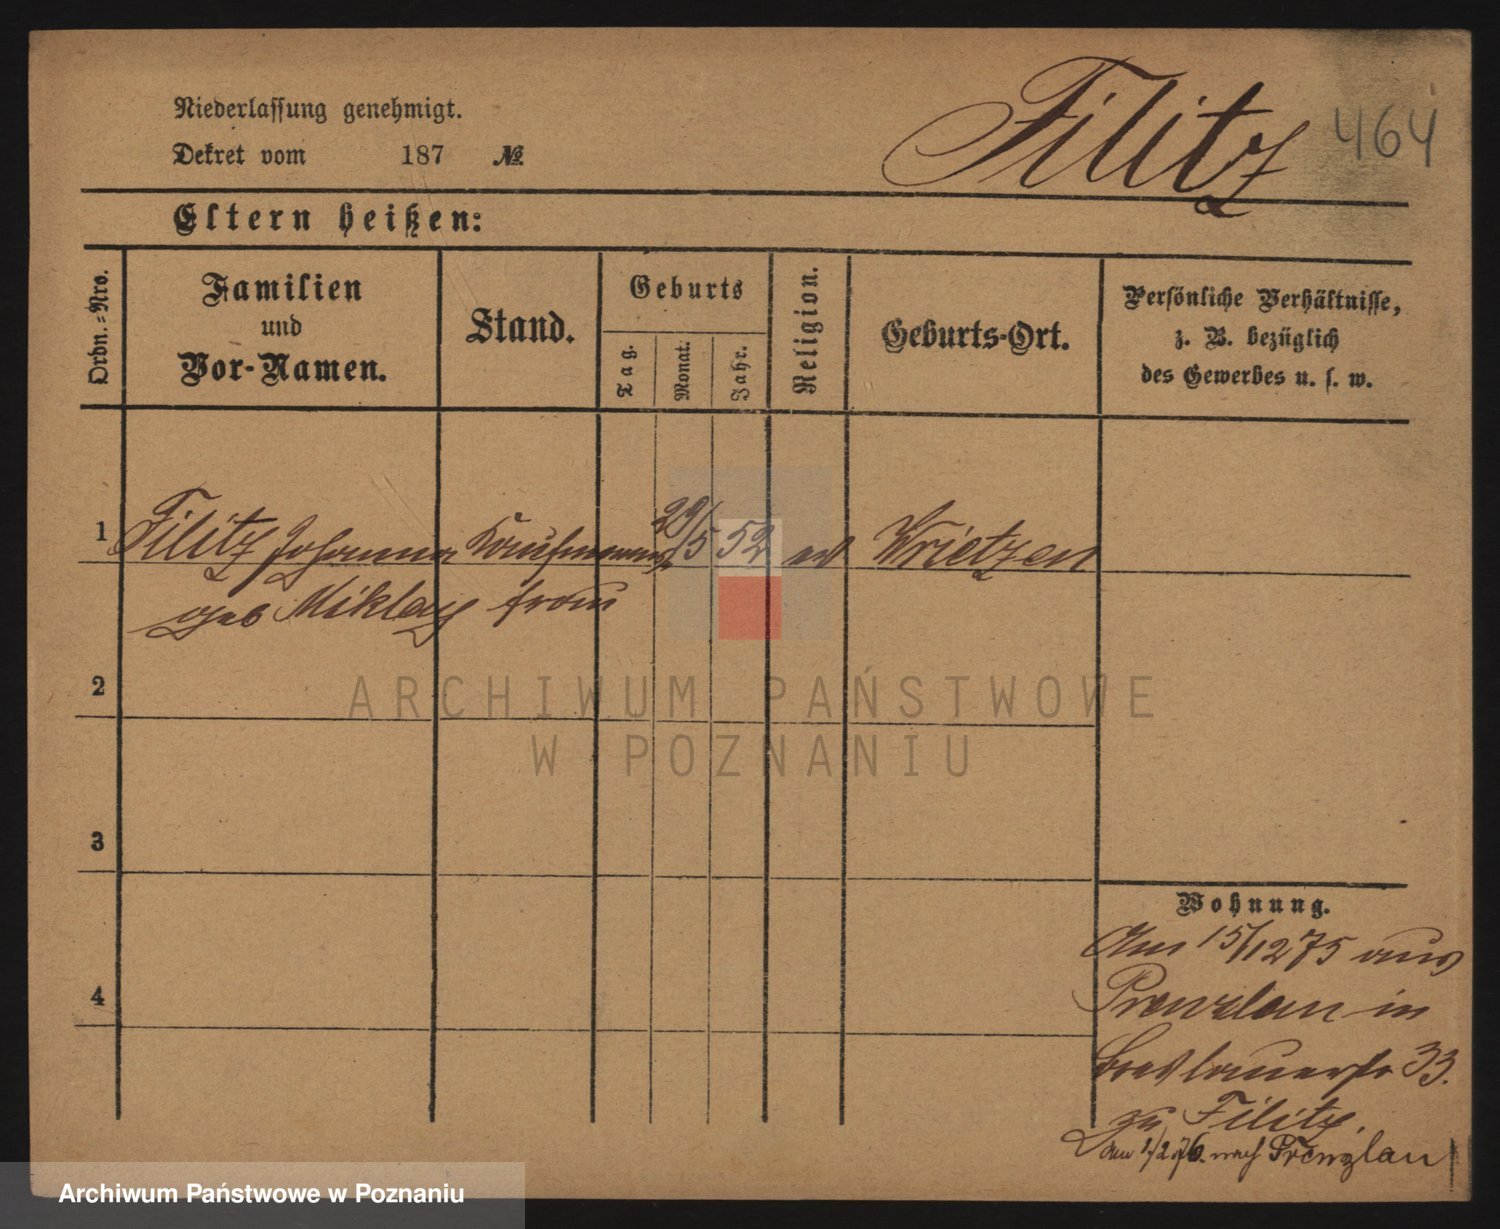 Filitz 464
Niederlassung genehmigt.
Dekret vom 187 №
Eltern heißen:
Ordn.-Nro.
Familien
und
Vor-Namen.
Stand.
Geburts
Tag.
Monat.
Jahr.
Religion.
Geburts-Ort.
Persönliche Verhältnisse,
z. B. bezüglich
des Gewerbes u. s. w.
1 Filitz Johanna Kaufmanns 29/5 52 ev Wrietzen
geb Miklay frau
2
3
4
Wohnung.
Am 15/12 75 aus
Prenzlau in
Breslauerstr 33.
zu Filitz.
Am 1/2 76. nach Prenzlau
ARCHIWUM PAŃSTWOWE
W POZNANIU
Archiwum Państwowe w Poznaniu